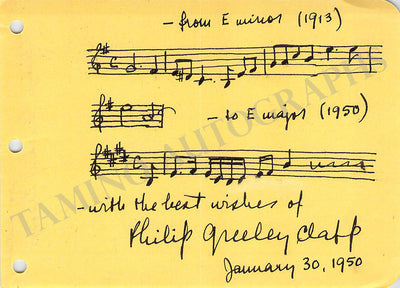 - from E minor (1913)
- to E major (1950)
- with the best wishes of
Philip Greeley Clapp
January 30, 1950
TAMINO AUTOGRAPHS